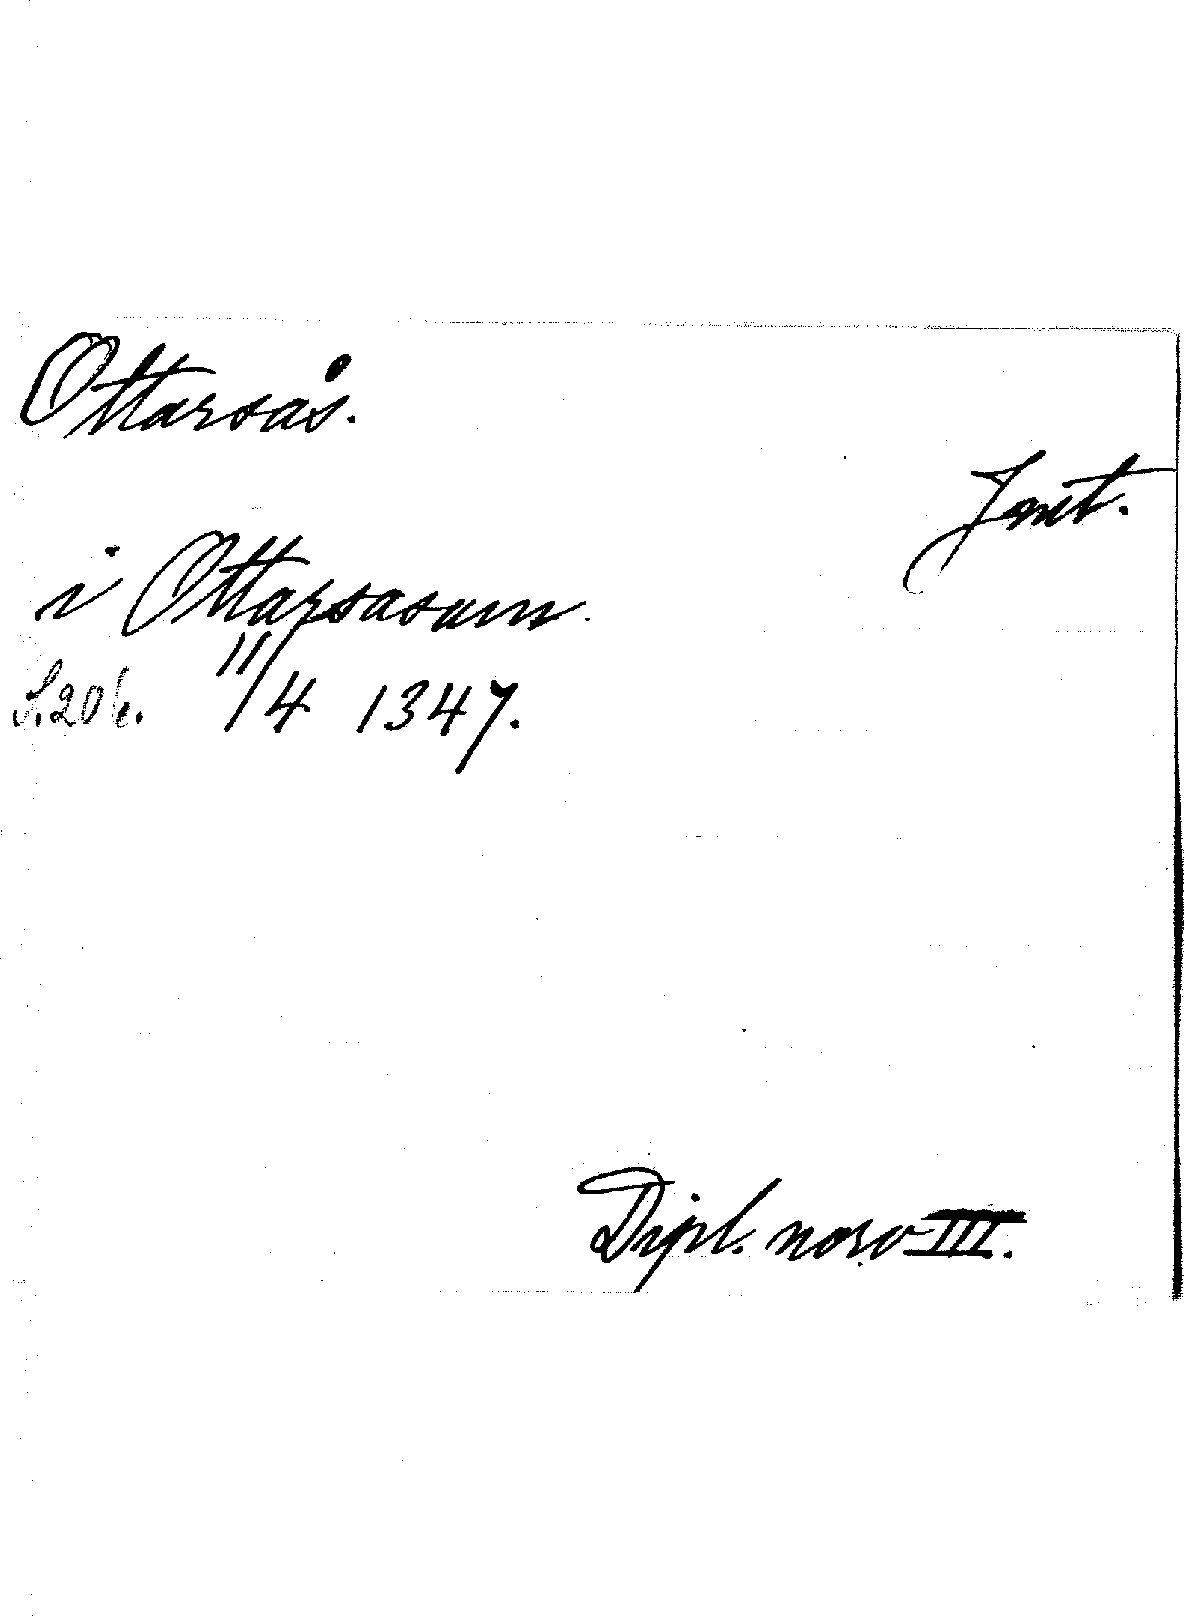 Ottarsås.
Jmt.
i Ottarsasum.
S.206. 11/4 1347.
Dipl. norv III.